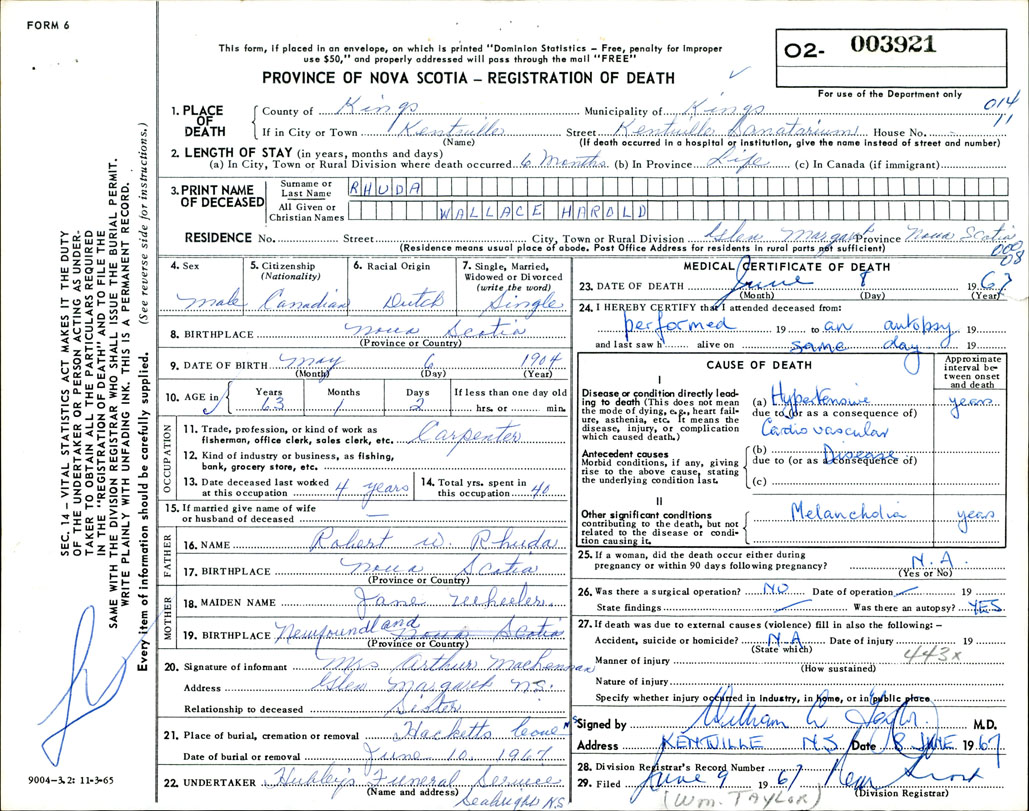 FORM 6
This form, if placed in an envelope, on which is printed "Dominion Statistics – Free, penalty for improper
use $50," and properly addressed will pass through the mail "FREE"
PROVINCE OF NOVA SCOTIA – REGISTRATION OF DEATH
O2- 003921
For use of the Department only
014
11
1. PLACE OF DEATH
County of Kings Municipality of Kings
If in City or Town Kentville Street Kentville Sanatorium House No.
(Name) (If death occurred in a hospital or institution, give the name instead of street and number)
2. LENGTH OF STAY (in years, months and days)
(a) In City, Town or Rural Division where death occurred 6 Months (b) In Province Life (c) In Canada (if immigrant)
3. PRINT NAME OF DECEASED
Surname or Last Name RHUDA
All Given or Christian Names WALLACE HAROLD
RESIDENCE No. Street City, Town or Rural Division Glen Margaret Province Nova Scotia
(Residence means usual place of abode. Post Office Address for residents in rural parts not sufficient)
000
08
4. Sex Male
5. Citizenship (Nationality) Canadian
6. Racial Origin Dutch
7. Single, Married, Widowed or Divorced (write the word) Single
8. BIRTHPLACE Nova Scotia
(Province or Country)
9. DATE OF BIRTH May 6 1904
(Month) (Day) (Year)
10. AGE in Years 63 Months 1 Days 2 If less than one day old hrs. or min.
OCCUPATION
11. Trade, profession, or kind of work as fisherman, office clerk, sales clerk, etc. Carpenter
12. Kind of industry or business, as fishing, bank, grocery store, etc.
13. Date deceased last worked at this occupation 4 years
14. Total yrs. spent in this occupation 40
15. If married give name of wife or husband of deceased —
FATHER
16. NAME Robert W. Rhuda
17. BIRTHPLACE Nova Scotia
(Province or Country)
MOTHER
18. MAIDEN NAME Jane Wheeler
19. BIRTHPLACE Newfoundland Nova Scotia
(Province or Country)
20. Signature of informant Mrs Arthur MacLennan
Address Glen Margaret N.S.
Relationship to deceased Sister
21. Place of burial, cremation or removal Hacketts Cove NS
Date of burial or removal June 10, 1967
22. UNDERTAKER Hubley's Funeral Service
(Name and address) Seabright N.S
MEDICAL CERTIFICATE OF DEATH
23. DATE OF DEATH June 8 1967
(Month) (Day) (Year)
24. I HEREBY CERTIFY that I attended deceased from:
performed 19 to an autopsy 19
and last saw h alive on same day 19
CAUSE OF DEATH
Approximate interval between onset and death
I
Disease or condition directly leading to death (This does not mean the mode of dying, e.g., heart failure, asthenia, etc. It means the disease, injury, or complication which caused death.)
(a) Hypertensive years
due to (or as a consequence of)
Cardiovascular
Antecedent causes
Morbid conditions, if any, giving rise to the above cause, stating the underlying condition last.
(b) Disease
due to (or as a consequence of)
(c)
II
Other significant conditions contributing to the death, but not related to the disease or condition causing it.
Melancholia years
25. If a woman, did the death occur either during pregnancy or within 90 days following pregnancy? N.A.
(Yes or No)
26. Was there a surgical operation? NO Date of operation 19
State findings Was there an autopsy? YES
27. If death was due to external causes (violence) fill in also the following: –
Accident, suicide or homicide? N.A Date of injury 19
(State which)
443x
Manner of injury
(How sustained)
Nature of injury
Specify whether injury occurred in Industry, in home, or in public place
Signed by William L Taylor M.D.
Address KENTVILLE N.S Date 8 JUNE 1967
28. Division Registrar's Record Number
29. Filed June 9 1967
(Division Registrar)
(Wm. TAYLOR)
SEC. 14 – VITAL STATISTICS ACT MAKES IT THE DUTY
OF THE UNDERTAKER OR PERSON ACTING AS UNDER-
TAKER TO OBTAIN ALL THE PARTICULARS REQUIRED
IN THE "REGISTRATION OF DEATH" AND TO FILE THE
SAME WITH THE DIVISION REGISTRAR WHO SHALL ISSUE THE BURIAL PERMIT.
WRITE PLAINLY WITH UNFADING INK. THIS IS A PERMANENT RECORD.
Every item of information should be carefully supplied. (See reverse side for instructions.)
9004-3.2: 11-3-65